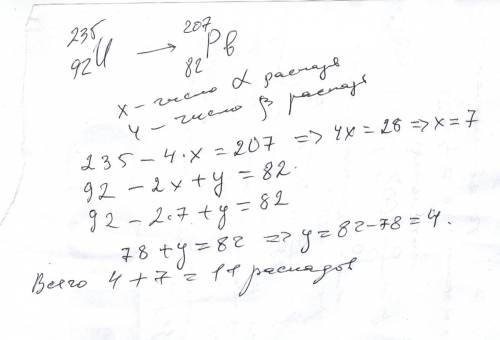 ²³⁵₉₂U → ²⁰⁷₈₂Pb
x – число α распада
y – число β распада
235 – 4·x = 207 => 4x = 28 => x = 7
92 – 2x + y = 82.
92 – 2·7 + y = 82
78 + y = 82 => y = 82 – 78 = 4.
Всего 4 + 7 = 11 распадов